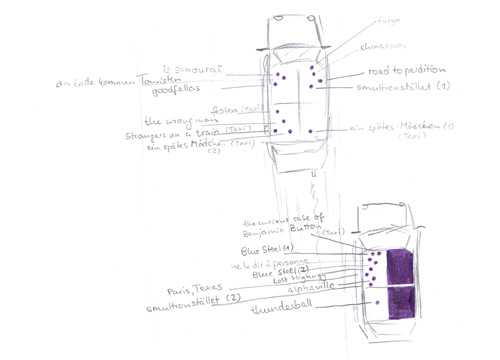 fargo
le samouraï
chinatown
am ende kommen Touristen
road to perdition
goodfellas
smultronstället (1)
festen (Taxi)
the wrong man
strangers on a train (Taxi)
ein spätes Mädchen (1)
(Taxi)
ein spätes Mädchen (Taxi)
(2)
the curious case of
Benjamin Button (Taxi)
Blue Steel (1)
ne le dit à personne
Blue Steel (2)
Lost Highway
Paris, Texas
alphaville
smultronstället (2)
thunderball